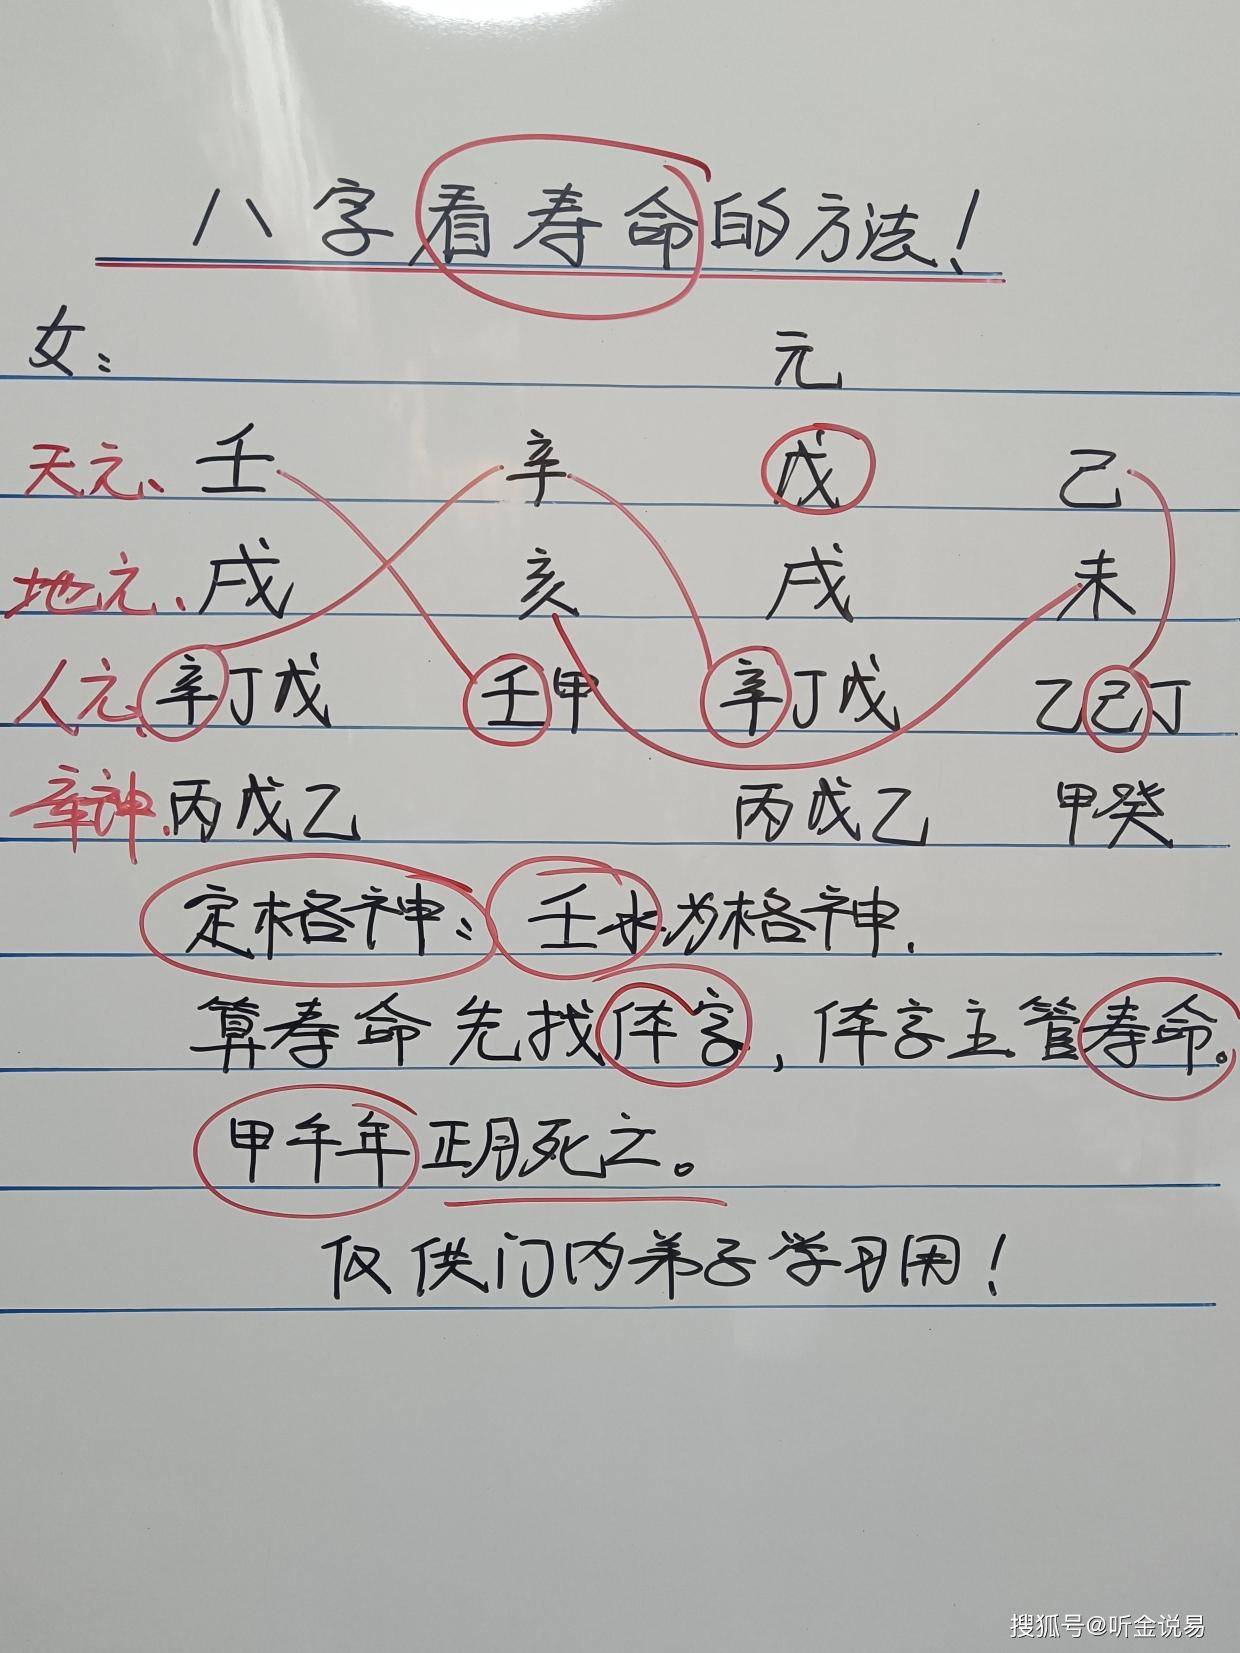 八字看寿命的方法!
女: 元
天元、壬 辛 戊 己
地元、戌 亥 戌 未
人元、辛丁戊 壬甲 辛丁戊 乙己丁
幸神.丙戊乙 丙戊乙 甲癸
定格神: 壬水为格神.
算寿命先找体字,体字主管寿命。
甲午年正月死之。
仅供门内弟子学习用!
搜狐号@听金说易